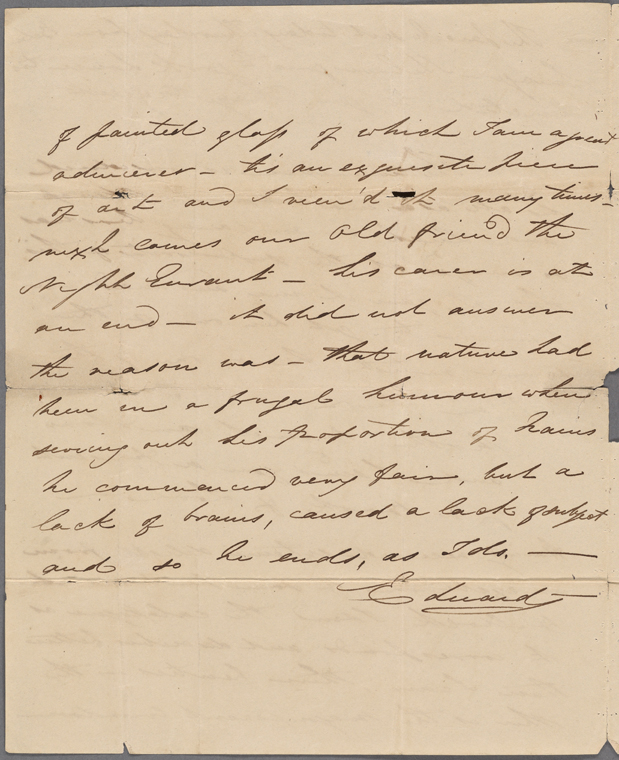 of painted glass of which I am a great
admirer – tis an exquisite piece
of art and I view'd it many times –
next comes our old friend the
Night Errant – his career is at
an end – it did not answer
the reason was – that nature had
been in a frugal humour when
serving out his proportion of brains
he commenced very fair, but a
lack of brains, caused a lack of subject
and so he ends, as I do. —
Edward